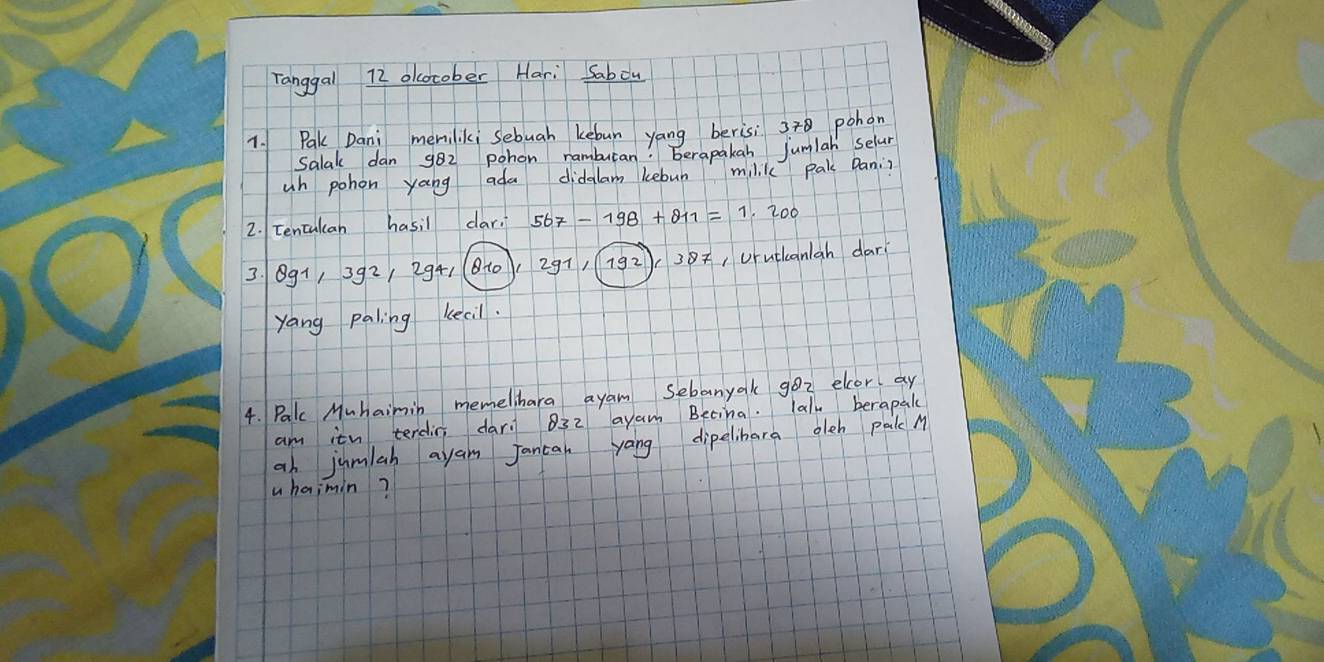 Tanggal 12 oktober Hari Sabtu
1. Pak Dani memiliki sebuah kebun yang berisi 378 pohon
Salak dan 982 pohon rambutan. Berapakah jumlah selur
uh pohon yang ada didalam kebun milik pak Dani?
2. Tentukan hasil dari 567 - 198 + 811 = 1.200
3. 891, 392, 294, 810, 291, 192, 387, Urutkanlah dari
yang paling kecil.
4. Pak Muhaimin memelihara ayam Sebanyak 982 ekor. ay
am itu terdiri dari 832 ayam Betina. lalu berapak
ah jumlah ayam Jantan yang dipelihara oleh pak M
uhaimin ?